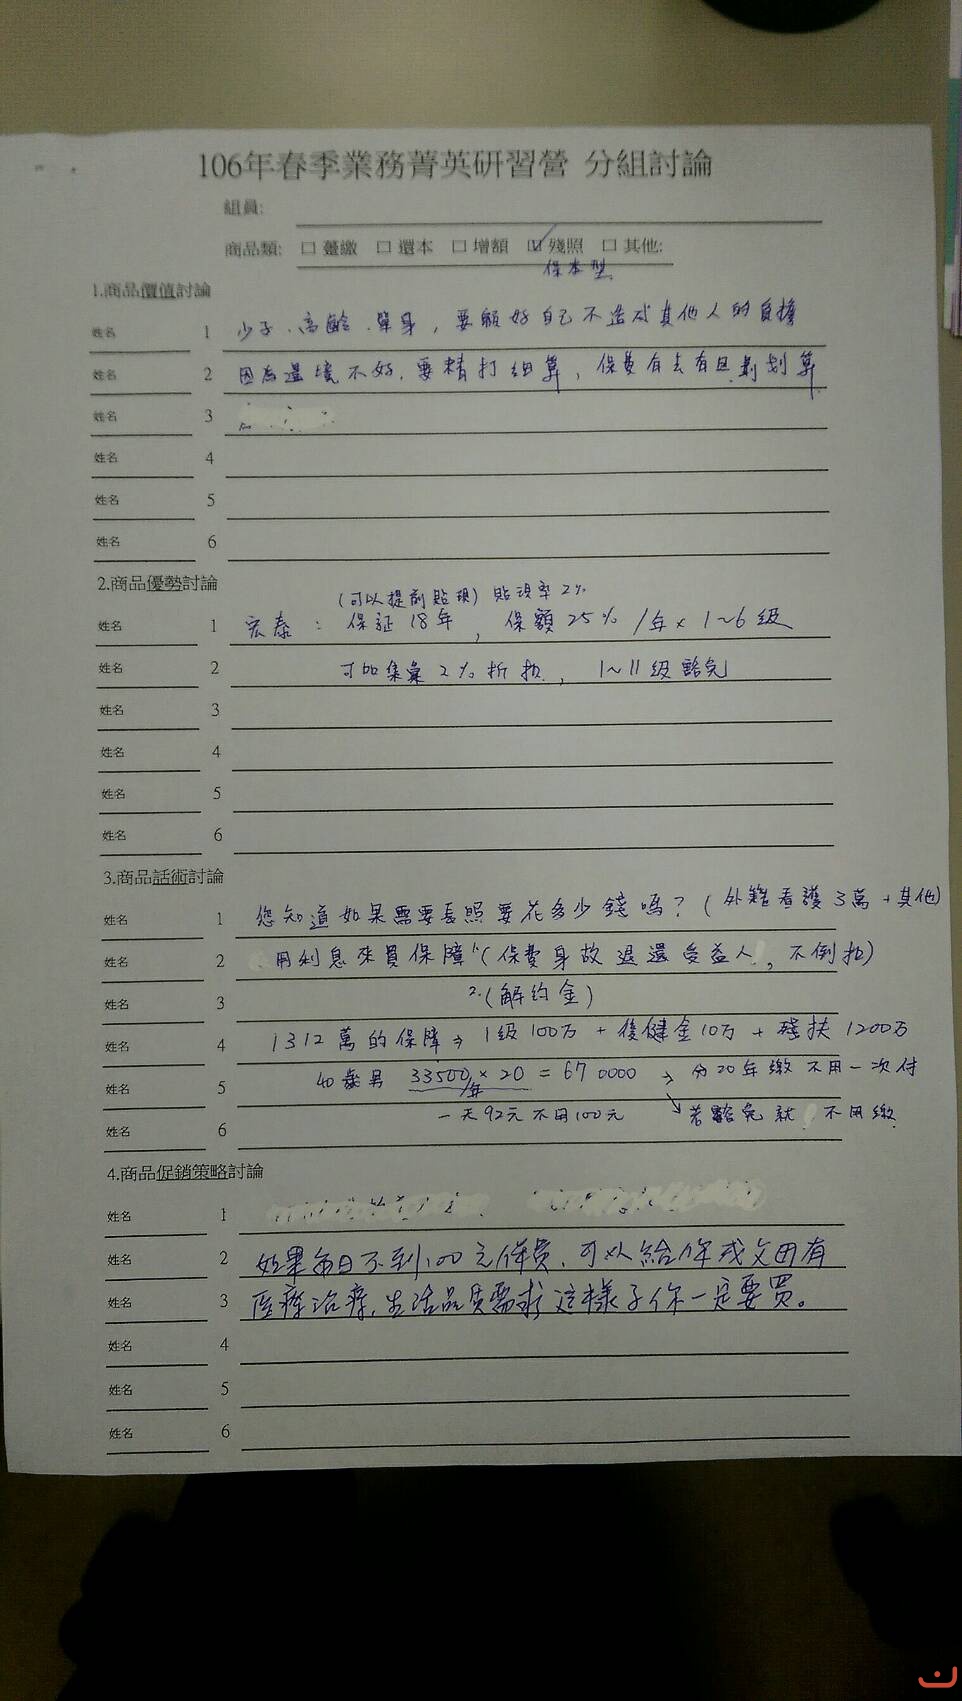 106年春季業務菁英研習營 分組討論
組員:
商品類: □ 躉繳 □ 還本 □ 增額 ☑ 殘照 □ 其他:
保本型
1.商品價值討論
姓名 1 少子、高齡、單身，要顧好自己不造成其他人的負擔
姓名 2 因為環境不好，要精打細算，保費有去有回最划算
姓名 3
姓名 4
姓名 5
姓名 6
2.商品優勢討論
(可以提前貼現) 貼現率2%
姓名 1 宏泰：保証18年，保額25%/年×1~6級
姓名 2 可加集彙2%折扣，1~11級豁免
姓名 3
姓名 4
姓名 5
姓名 6
3.商品話術討論
姓名 1 您知道如果需要長照要花多少錢嗎?(外籍看護3萬+其他)
姓名 2 用利息來買保障 1.(保費身故退還受益人，不倒扣)
姓名 3 2.(解約金)
姓名 4 1312萬的保障→1級100万+復健金10万+殘扶1200万
姓名 5 40歲男 33500/年×20=670000 → 分20年繳不用一次付
一天92元不用100元 ↘若豁免就不用繳
姓名 6
4.商品促銷策略討論
姓名 1
姓名 2 如果每日不到100元保費，可以給你或家田有
姓名 3 医療治療,生活品質需求這樣子你一定要買。
姓名 4
姓名 5
姓名 6